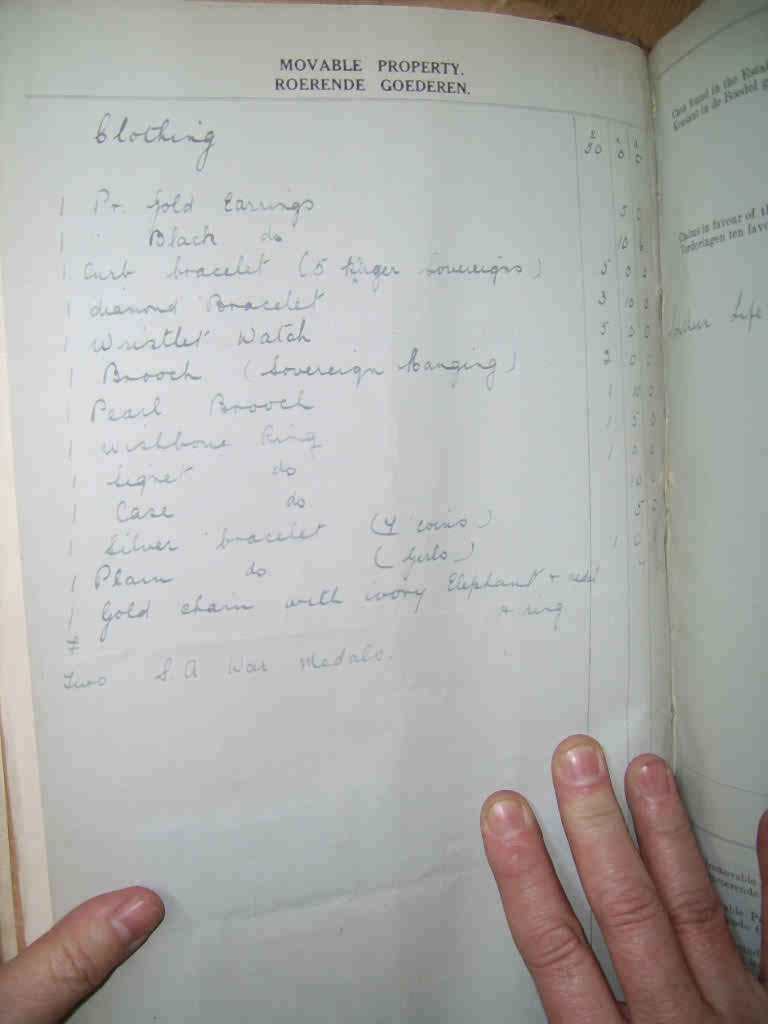 MOVABLE PROPERTY.
ROERENDE GOEDEREN.
£ s d
Clothing 50 0 0
1 Pr. Gold Earrings 5 0
1 " Black do 10 6
1 Curb bracelet (5 Kruger Sovereigns) 5 0 0
1 diamond Bracelet 3 10 0
1 Wristlet Watch 5 0 0
1 Brooch (Sovereign hanging) 2 0 0
1 Pearl Brooch 1 10 0
1 Wishbone Ring 1 5 0
1 Signet do 1 0 0
1 Case do 10 0
1 Silver bracelet (4 coins) 5 0
1 Plain do (Girls)
1 Gold chain with ivory Elephant + medal 1 0
+ ring
Two S.A War Medals.
Cash found in the
Kontant in de Boedel
Claims in favour of
Vorderingen ten
Life